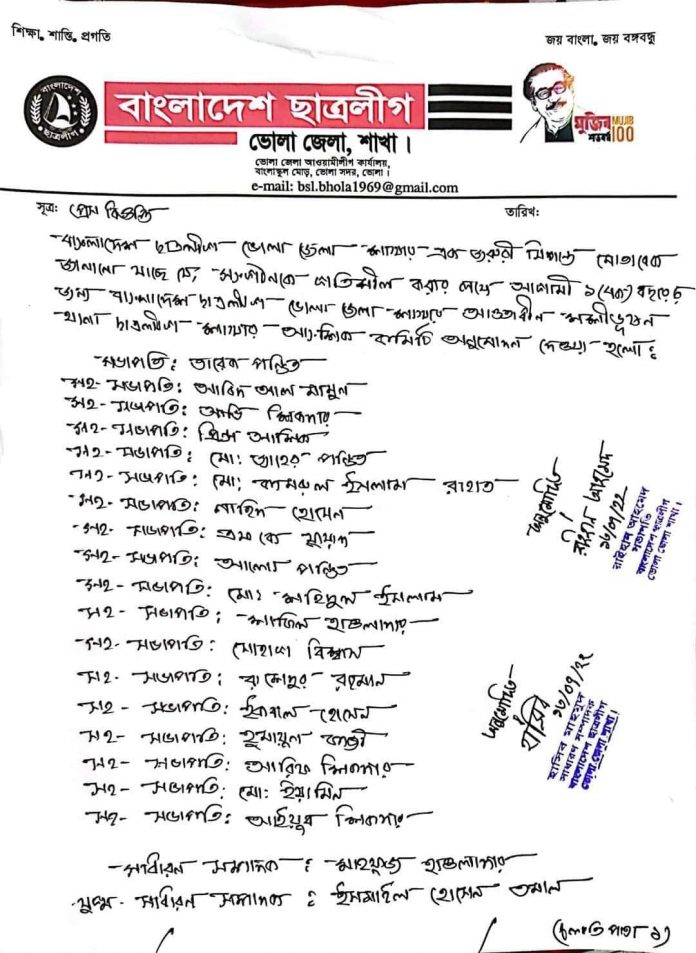 শিক্ষা, শান্তি, প্রগতি
জয় বাংলা, জয় বঙ্গবন্ধু
বাংলাদেশ
ছাত্রলীগ
বাংলাদেশ ছাত্রলীগ
ভোলা জেলা, শাখা।
ভোলা জেলা আওয়ামীলীগ কার্যালয়,
বাংলাস্কুল মোড়, ভোলা সদর, ভোলা।
e-mail: bsl.bhola1969@gmail.com
মুজিব MUJIB
শতবর্ষ 100
সূত্র: প্রেস বিজ্ঞপ্তি
তারিখ:
বাংলাদেশ ছাত্রলীগ ভোলা জেলা শাখার এক জরুরী সিদ্ধান্ত মোতাবেক
জানানো যাচ্ছে যে, সংগঠনকে গতিশীল করার লক্ষে আগামী ১ (এক) বছরের
জন্য বাংলাদেশ ছাত্রলীগ ভোলা জেলা শাখার আওতাধীন শশীভূষন
থানা ছাত্রলীগ শাখার আংশিক কমিটি অনুমোদন দেওয়া হলো:
সভাপতি: তারেক পন্ডিত
সহ- সভাপতি: আবিদ আল মামুন
সহ- সভাপতি: শিকদার
সহ- সভাপতি: প্রিন্স আশিক
সহ- সভাপতি: মো: তাহের পন্ডিত
সহ- সভাপতি: মো: কামরুল ইসলাম রাহাত
সহ- সভাপতি: নাহিদ হোসেন
সহ- সভাপতি: এম কে
সহ- সভাপতি: আলো পন্ডিত
সহ- সভাপতি: মো: শহিদুল ইসলাম
সহ- সভাপতি: শাকিল হাওলাদার
সহ- সভাপতি: সোহাগ বিশ্বাস
সহ- সভাপতি: রহমান
সহ- সভাপতি: ইকবাল হোসেন
সহ- সভাপতি: হুমায়ুন কাজী
সহ- সভাপতি: আরিফ শিকদার
সহ- সভাপতি: মো: ইয়ামিন
সহ- সভাপতি: আইয়ুব শিকদার
সাধারন সম্পাদক: মাহফুজ হাওলাদার
যুগ্ম- সাধারন সম্পাদক: ইসমাইল হোসেন
(চলতি পাতা ১)
অনুমোদিত
রাইহান আহমেদ
সভাপতি
বাংলাদেশ ছাত্রলীগ
ভোলা জেলা শাখা।
অনুমোদিত
হাসিব
হাসিব মাহমুদ
সাধারণ সম্পাদক
বাংলাদেশ ছাত্রলীগ
ভোলা জেলা শাখা।